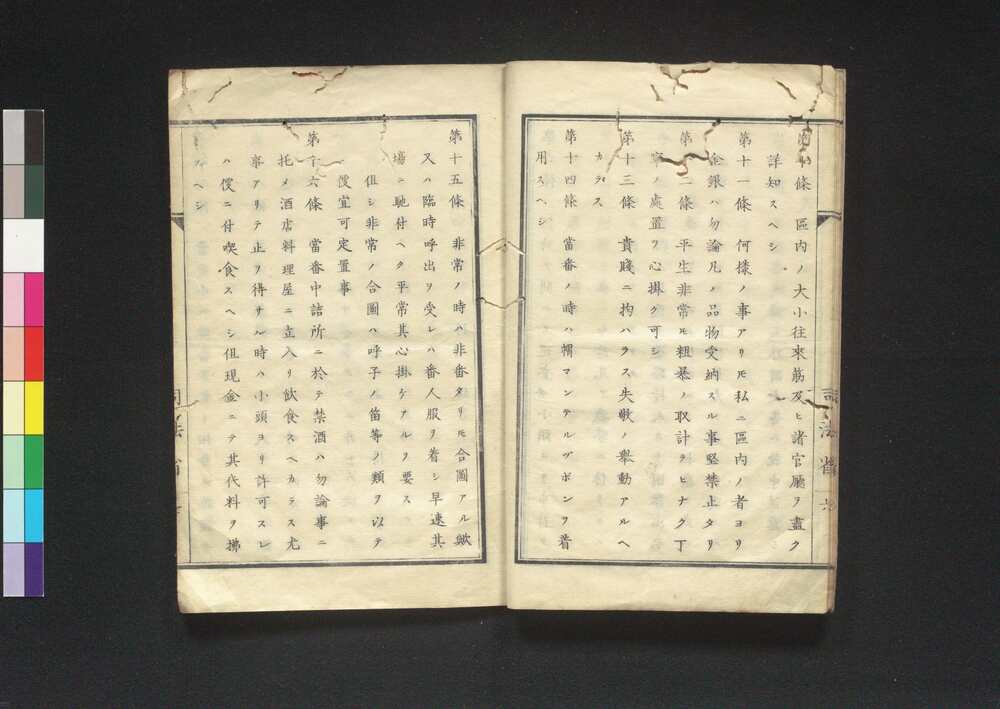 第十條　區内ノ大小往來筋及ヒ諸官廳ヲ盡ク
詳知スヘシ
第十一條　何樣ノ事アリトモ私ニ區内ノ者ヨリ
金銀ハ勿論凡ノ品物受納スル事堅禁止タリ
第十二條　平生非常トモ粗暴ノ取計ラヒナク丁
寧ノ處置ヲ心掛ク可シ
第十三條　貴賤ニ拘ハラス失敬ノ舉動アルヘ
カラス
第十四條　當番ノ時ハ帽マンテルヅボンヲ着
用スヘシ
司法省
第十五條　非常ノ時ハ非番タリトモ合圖アル歟
又ハ臨時呼出ヲ受レハ番人服ヲ着シ早速其
場ニ馳付ヘク平常其心掛ケアルヲ要ス
但シ非常ノ合圖ハ呼子ノ笛等ノ類ヲ以テ
便宜可定置事
第十六條　當番中詰所ニ於テ禁酒ハ勿論事ニ
托メ酒店料理屋ニ立入リ飲食スヘカラス尤
事アリテ止ヲ得サル時ハ小頭ヨリ許可スレ
ハ便ニ付喫食スヘシ但現金ニテ其代料ヲ拂
フヘシ
司法省